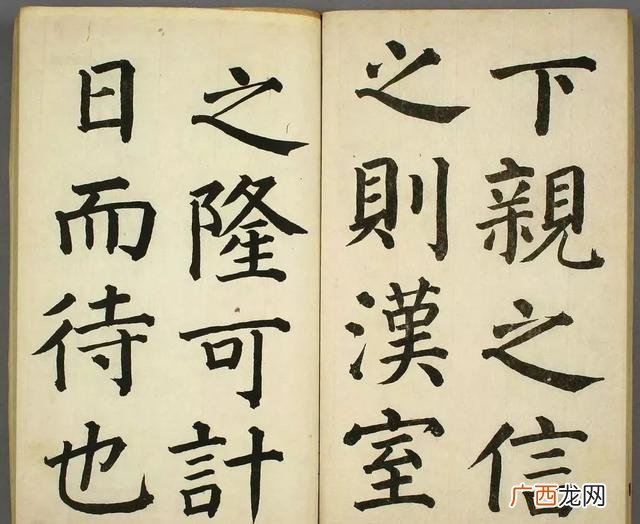 下親之信
之則漢室
之隆可計
日而待也
广西龙网